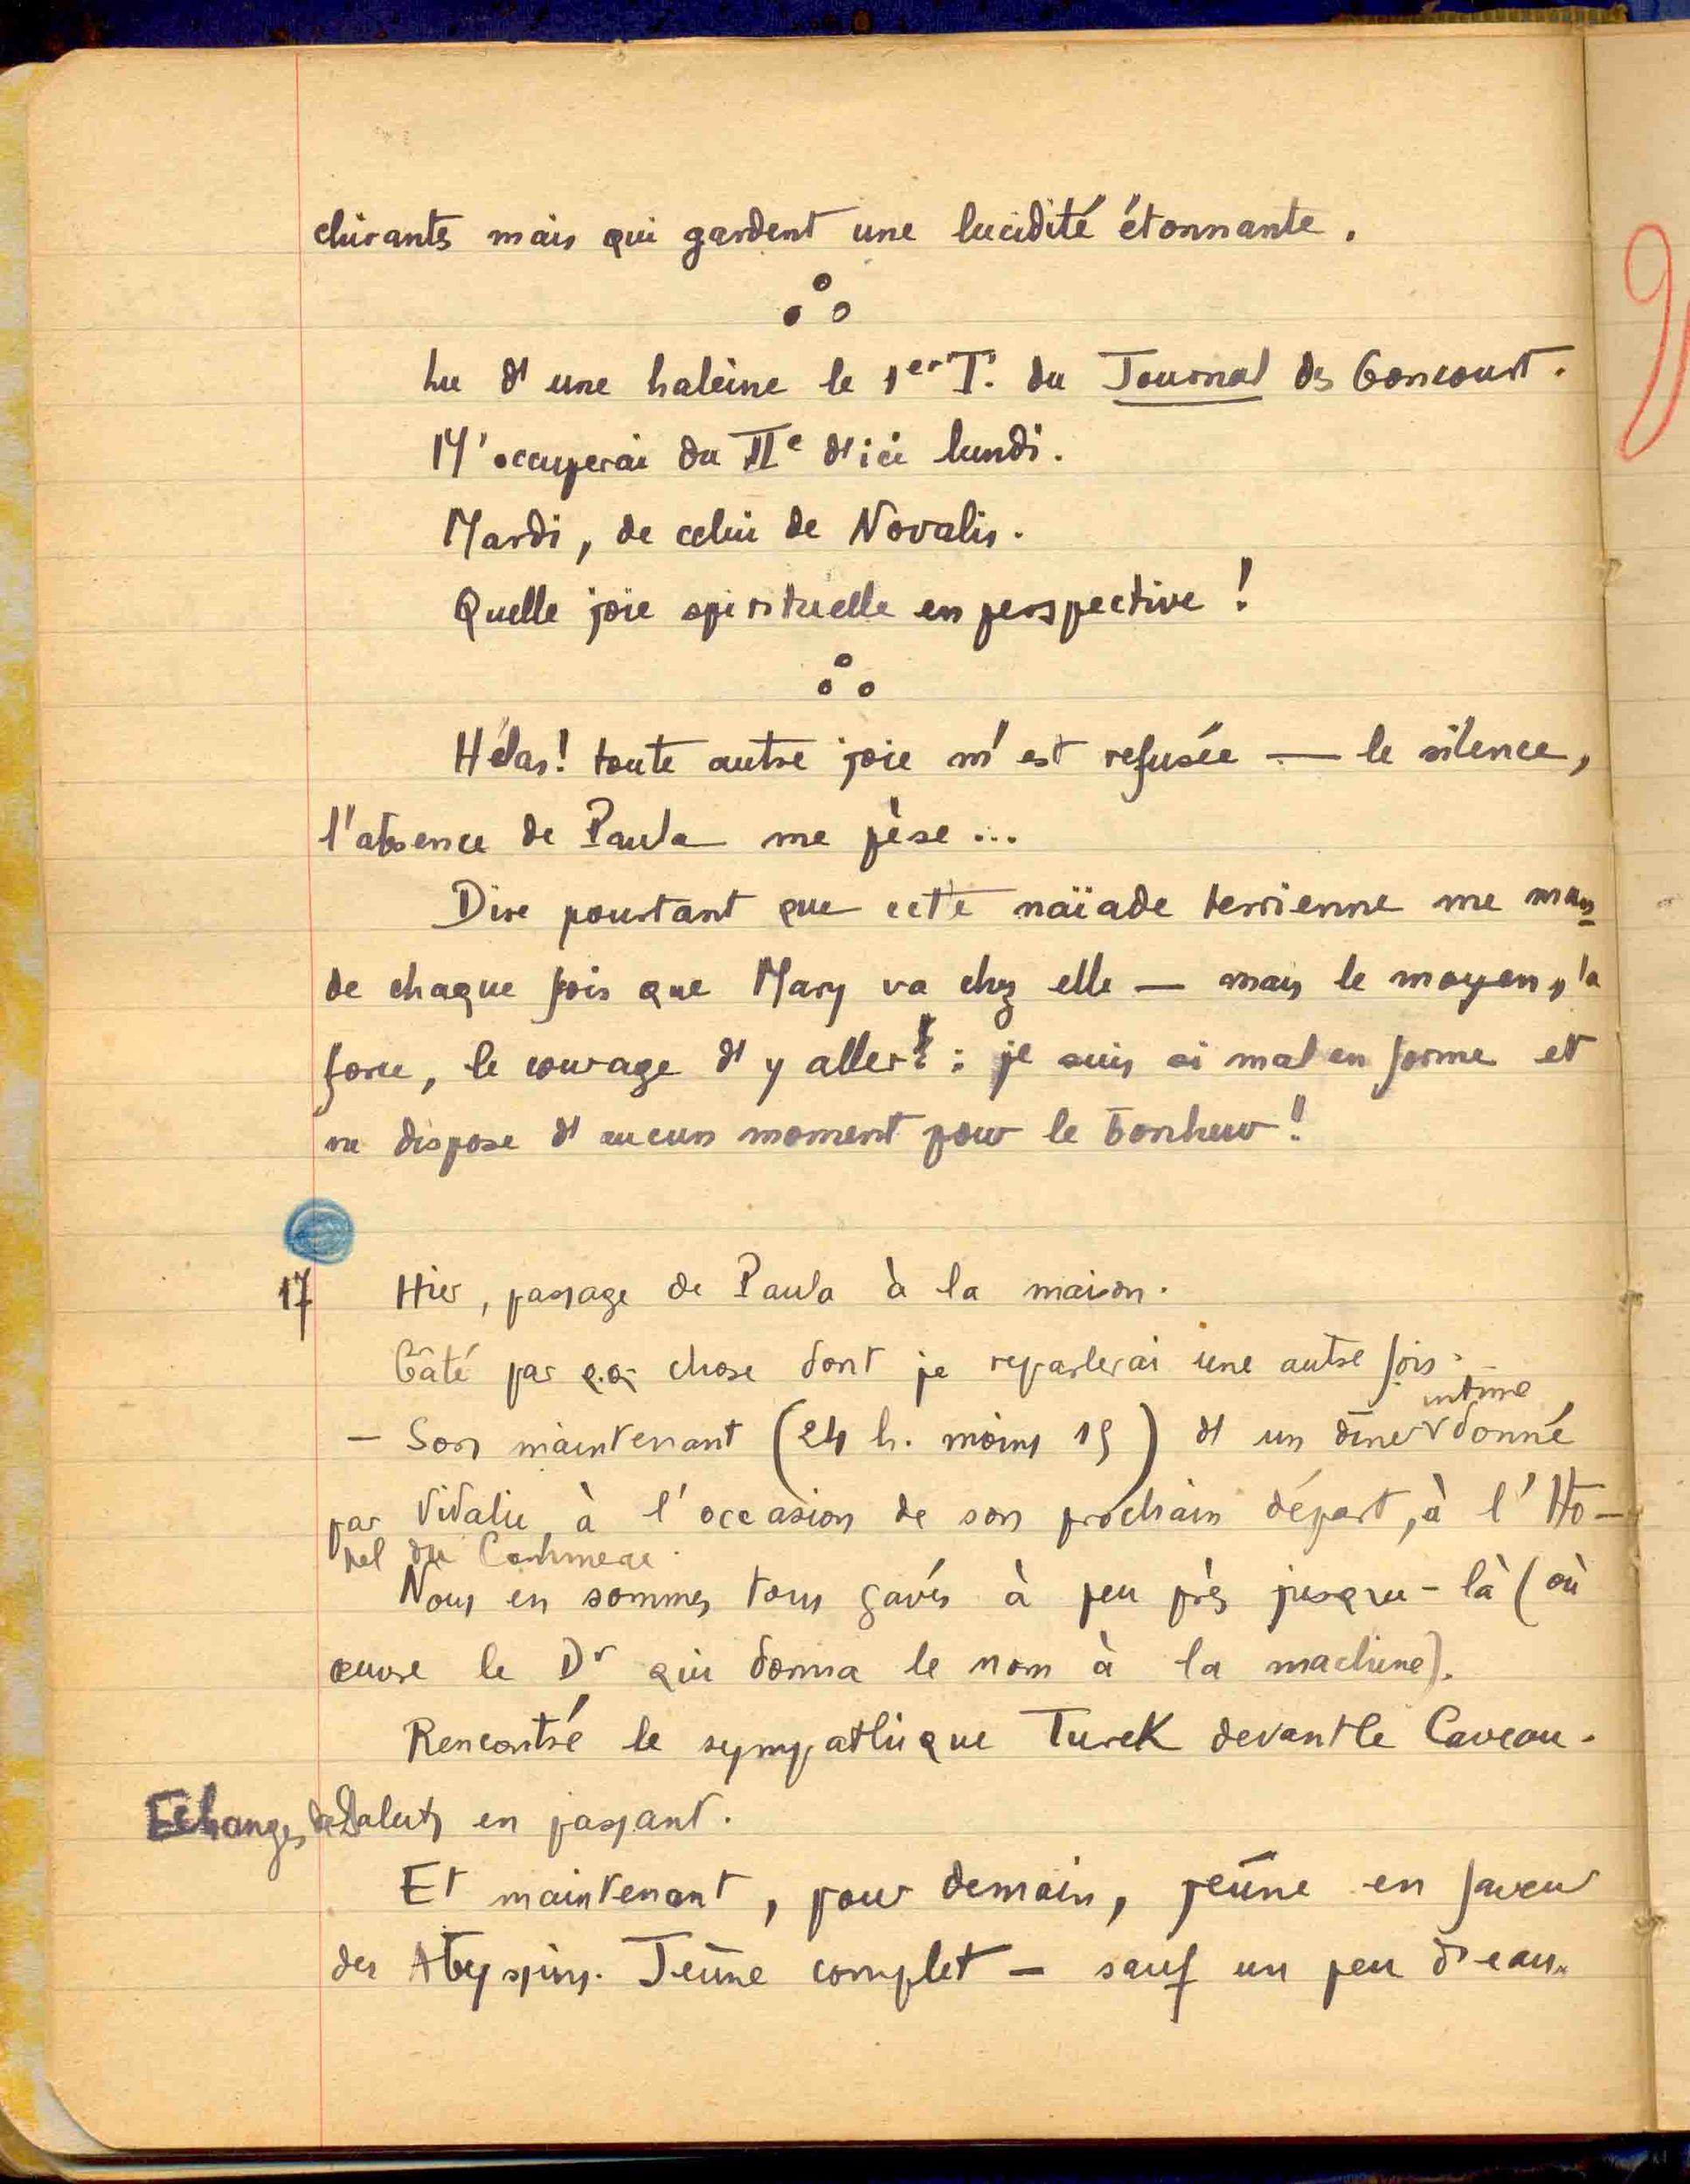 chirants mais qui gardent une lucidité étonnante.
Lu d'une haleine le 1er T. du Journal des Goncourt.
M'occuperai du IIe d'ici lundi.
Mardi, de celui de Novalis.
Quelle joie spirituelle en perspective !
Hélas ! toute autre joie m'est refusée — le silence,
l'absence de Paula me pèse ...
Dire pourtant que cette naïade terrienne me man-
de chaque fois que Mary va chez elle — mais le moyen, la
force, le courage d'y aller : je suis si mal en forme et
ne dispose d'aucun moment pour le bonheur !
17 Hier, passage de Paula à la maison.
Gâté par q.q. chose dont je reparlerai une autre fois.
— Sors maintenant (24 h. moins 15) d'un dîner intime donné
par Vidalie à l'occasion de son prochain départ, à l'Hô-
tel du
Nous en sommes tous gavés à peu près jusque-là (où
œuvre le Dr qui donna le nom à la machine).
Rencontré le sympathique Turek devant le Caveau.
Echanges de Saluts en passant.
Et maintenant, pour demain, jeûne en faveur
des Abyssins. Jeûne complet — sauf un peu d'eau.